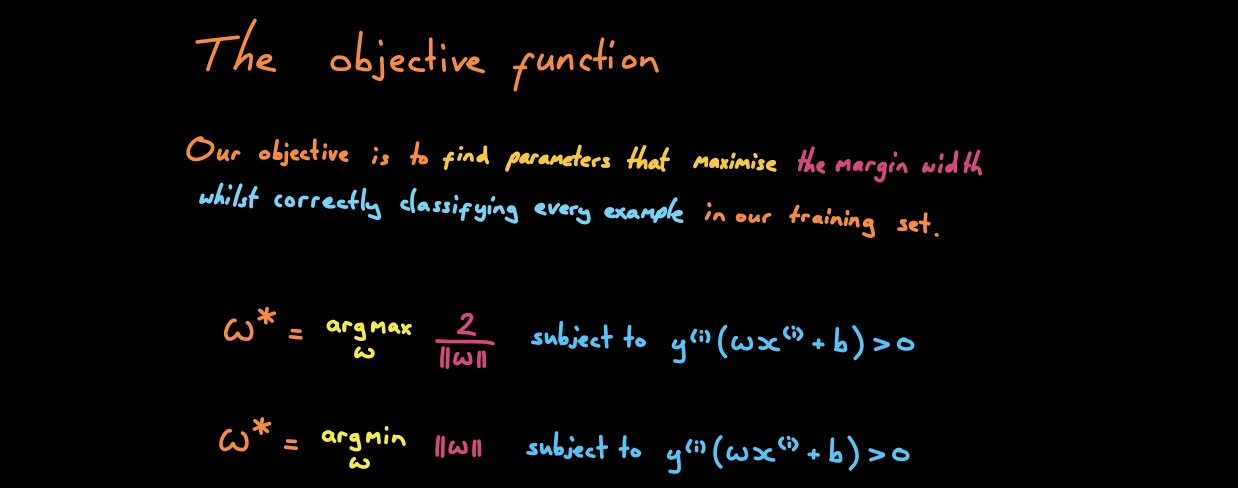 The objective function
Our objective is to find parameters that maximise the margin width
whilst correctly classifying every example in our training set.
ω* = argmax_ω 2/||ω|| subject to y⁽ⁱ⁾(ωx⁽ⁱ⁾ + b) > 0
ω* = argmin_ω ||ω|| subject to y⁽ⁱ⁾(ωx⁽ⁱ⁾ + b) > 0